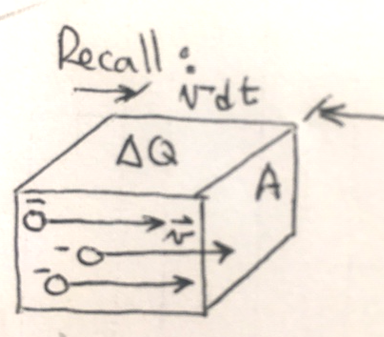 Recall:
v dt
ΔQ
A
- v⃗
-
-